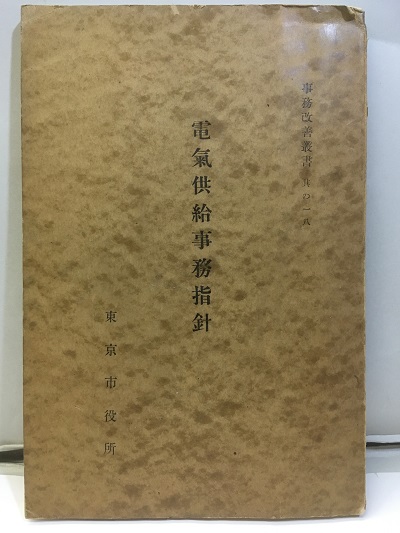 事務改善叢書 其の二八
電氣供給事務指針
東京市役所